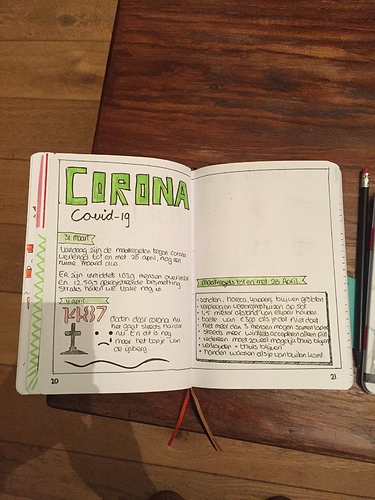 CORONA
Covid-19
31 maart
Vandaag zijn de maatregelen tegen corona
verlengd tot en met 28 april, nog een
ruime maand dus.
Er zijn inmiddels 1039 mensen overleden
en 12.595 geregistreerde besmetting
Straks halen we Italië nog in.
2 april
1487
doden door corona. nu
het gaat steeds harder
nu. En dit is nog
maar het topje van
de ijsberg.
20
maatregels tot en met 28 april.
scholen, horeca, kappers blijven gesloten
verpleeg en verzorgingshuizen op slot
1,5 meter afstand van elkaar houden.
boete van €390 als je dat niet doet.
niet meer dan 3 mensen mogen samen lopen
steeds meer winkels accepteren alleen pin
iedereen moet zoveel mogelijk thuis blijven
verkouden = thuis blijven
handen wassen als je van buiten komt.
21